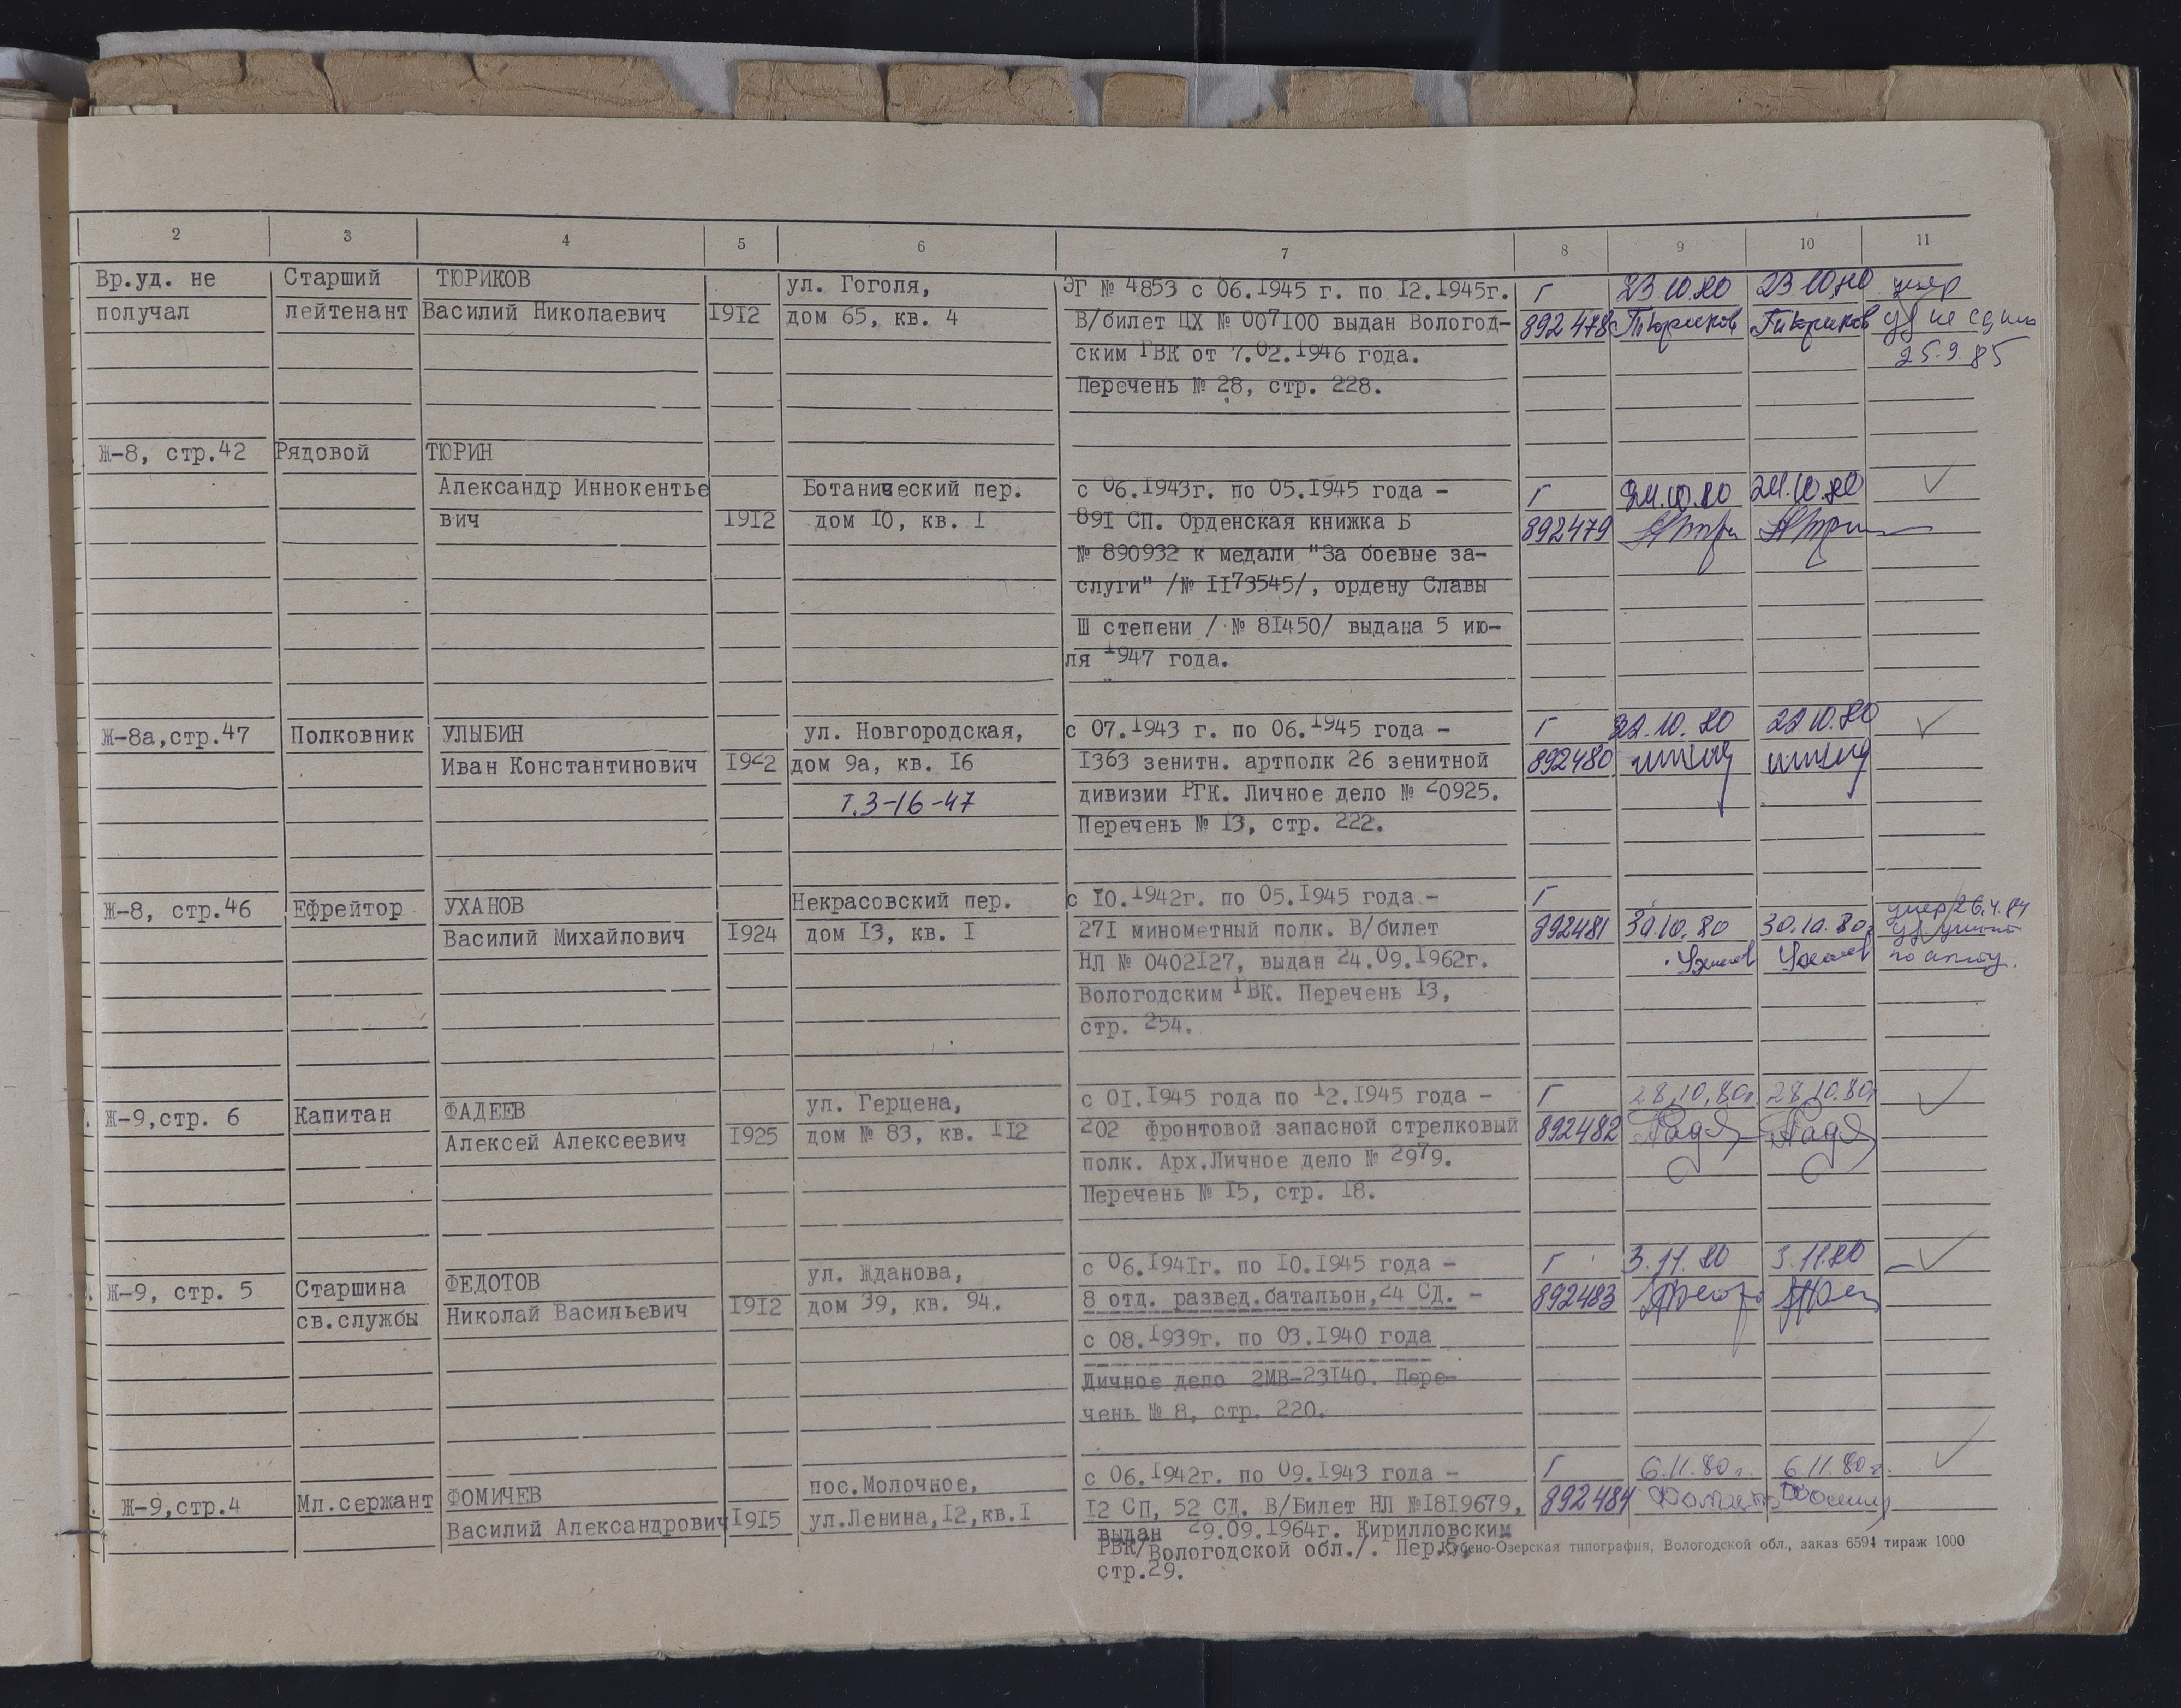 2 3 4 5 6 7 8 9 10 11
Вр.уд. не Старший ТЮРИКОВ ул. Гоголя, ЭГ № 4853 с 06.1945 г. по 12.1945г. Г 23.10.80 23.10.80 умер
получал лейтенант Василий Николаевич 1912 дом 65, кв. 4 В/билет ЦХ № 007100 выдан Вологод- 892478 Тюриков Тюриков уд не сдано
ским ГВК от 7.02.1946 года. 25.9.85
Перечень № 28, стр. 228.
Ж-8, стр.42 Рядовой ТЮРИН
Александр Иннокентье Ботанический пер. с 06.1943г. по 05.1945 года - Г 24.10.80 24.10.80
вич 1912 дом 10, кв. 1 891 СП. Орденская книжка Б 892479
№ 890932 к медали "За боевые за-
слуги" /№ 1173545/, ордену Славы
Ш степени / № 81450/ выдана 5 ию-
ля 1947 года.
Ж-8а,стр.47 Полковник УЛЫБИН ул. Новгородская, с 07.1943 г. по 06.1945 года - Г 22.10.80 22.10.80
Иван Константинович 1922 дом 9а, кв. 16 1363 зенитн. артполк 26 зенитной 892480
т.3-16-47 дивизии РГК. Личное дело № 20925.
Перечень № 13, стр. 222.
Ж-8, стр.46 Ефрейтор УХАНОВ Некрасовский пер. с 10.1942г. по 05.1945 года - Г умер 26.4.84
Василий Михайлович 1924 дом 13, кв. 1 271 минометный полк. В/билет 892481 30.10.80 30.10.80г
НЛ № 0402127, выдан 24.09.1962г. Уханов Уханов по акту.
Вологодским ГВК. Перечень 13,
стр. 254.
Ж-9,стр. 6 Капитан ФАДЕЕВ ул. Герцена, с 01.1945 года по 12.1945 года - Г 28.10.80г 28.10.80г
Алексей Алексеевич 1925 дом № 83, кв. 112 202 фронтовой запасной стрелковый 892482
полк. Арх.Личное дело № 2979.
Перечень № 15, стр. 18.
Ж-9, стр. 5 Старшина ФЕДОТОВ ул. Жданова, с 06.1941г. по 10.1945 года - Г 3.11.80 3.11.80
св.службы Николай Васильевич 1912 дом 39, кв. 94. 8 отд. развед.батальон,24 СД. - 892483
с 08.1939г. по 03.1940 года
Личное дело 2МВ-23140. Пере-
чень № 8, стр. 220.
Ж-9,стр.4 Мл.сержант ФОМИЧЕВ пос.Молочное, с 06.1942г. по 09.1943 года - Г 6.11.80г. 6.11.80г.
Василий Александрович 1915 ул.Ленина,12,кв.1 12 СП, 52 СД. В/Билет НЛ №1819679, 892484
выдан 29.09.1964г. Кирилловским
РВК/Вологодской обл./. Пер.5, Кубено-Озерская типография, Вологодской обл., заказ 6594 тираж 1000
стр.29.